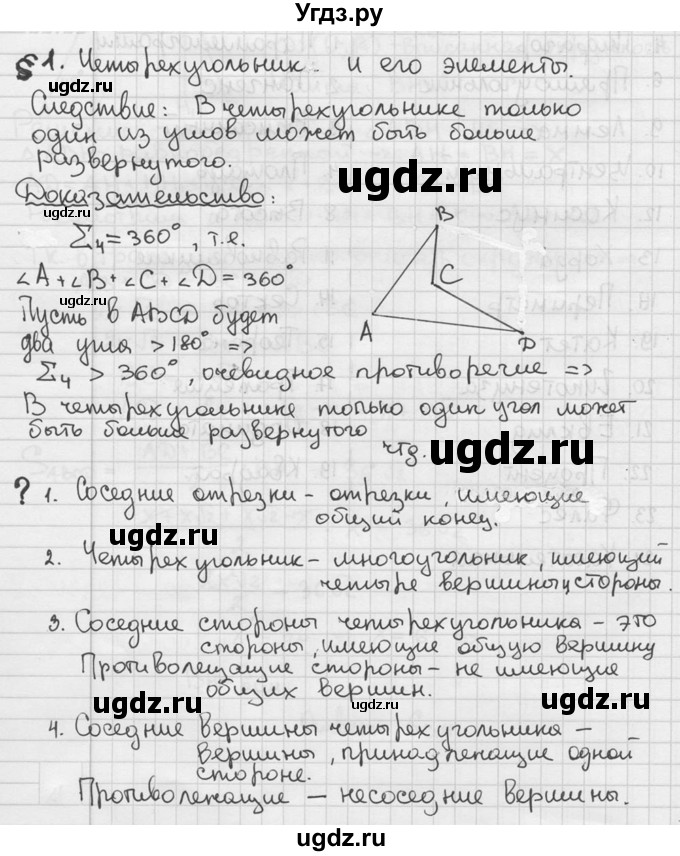 Угдз.ру
§1. Четырехугольник и его элементы.
Следствие: В четырехугольнике только
один из углов может быть больше
развернутого.
ugdz.ru
Доказательство:
Σ₄ = 360°, т.е.
∠A + ∠B + ∠C + ∠D = 360°
Пусть в ABCD будет
два угла > 180° =>
B
C
A
D
Σ₄ > 360°, очевидное противоречие =>
В четырехугольнике только один угол может
быть больше развернутого
чтд.
ugdz.ru
? 1. Соседние отрезки - отрезки, имеющие
общий конец.
ugdz.ru
2. Четырехугольник - многоугольник, имеющий
четыре вершины и стороны.
3. Соседние стороны четырехугольника - это
стороны, имеющие общую вершину
Противолежащие стороны - не имеющие
общих вершин.
ugdz.ru
ugdz.ru
4. Соседние вершины четырехугольника -
вершины, принадлежащие одной
стороне.
Противолежащие - несоседние вершины.
ugdz.ru
ugdz.ru